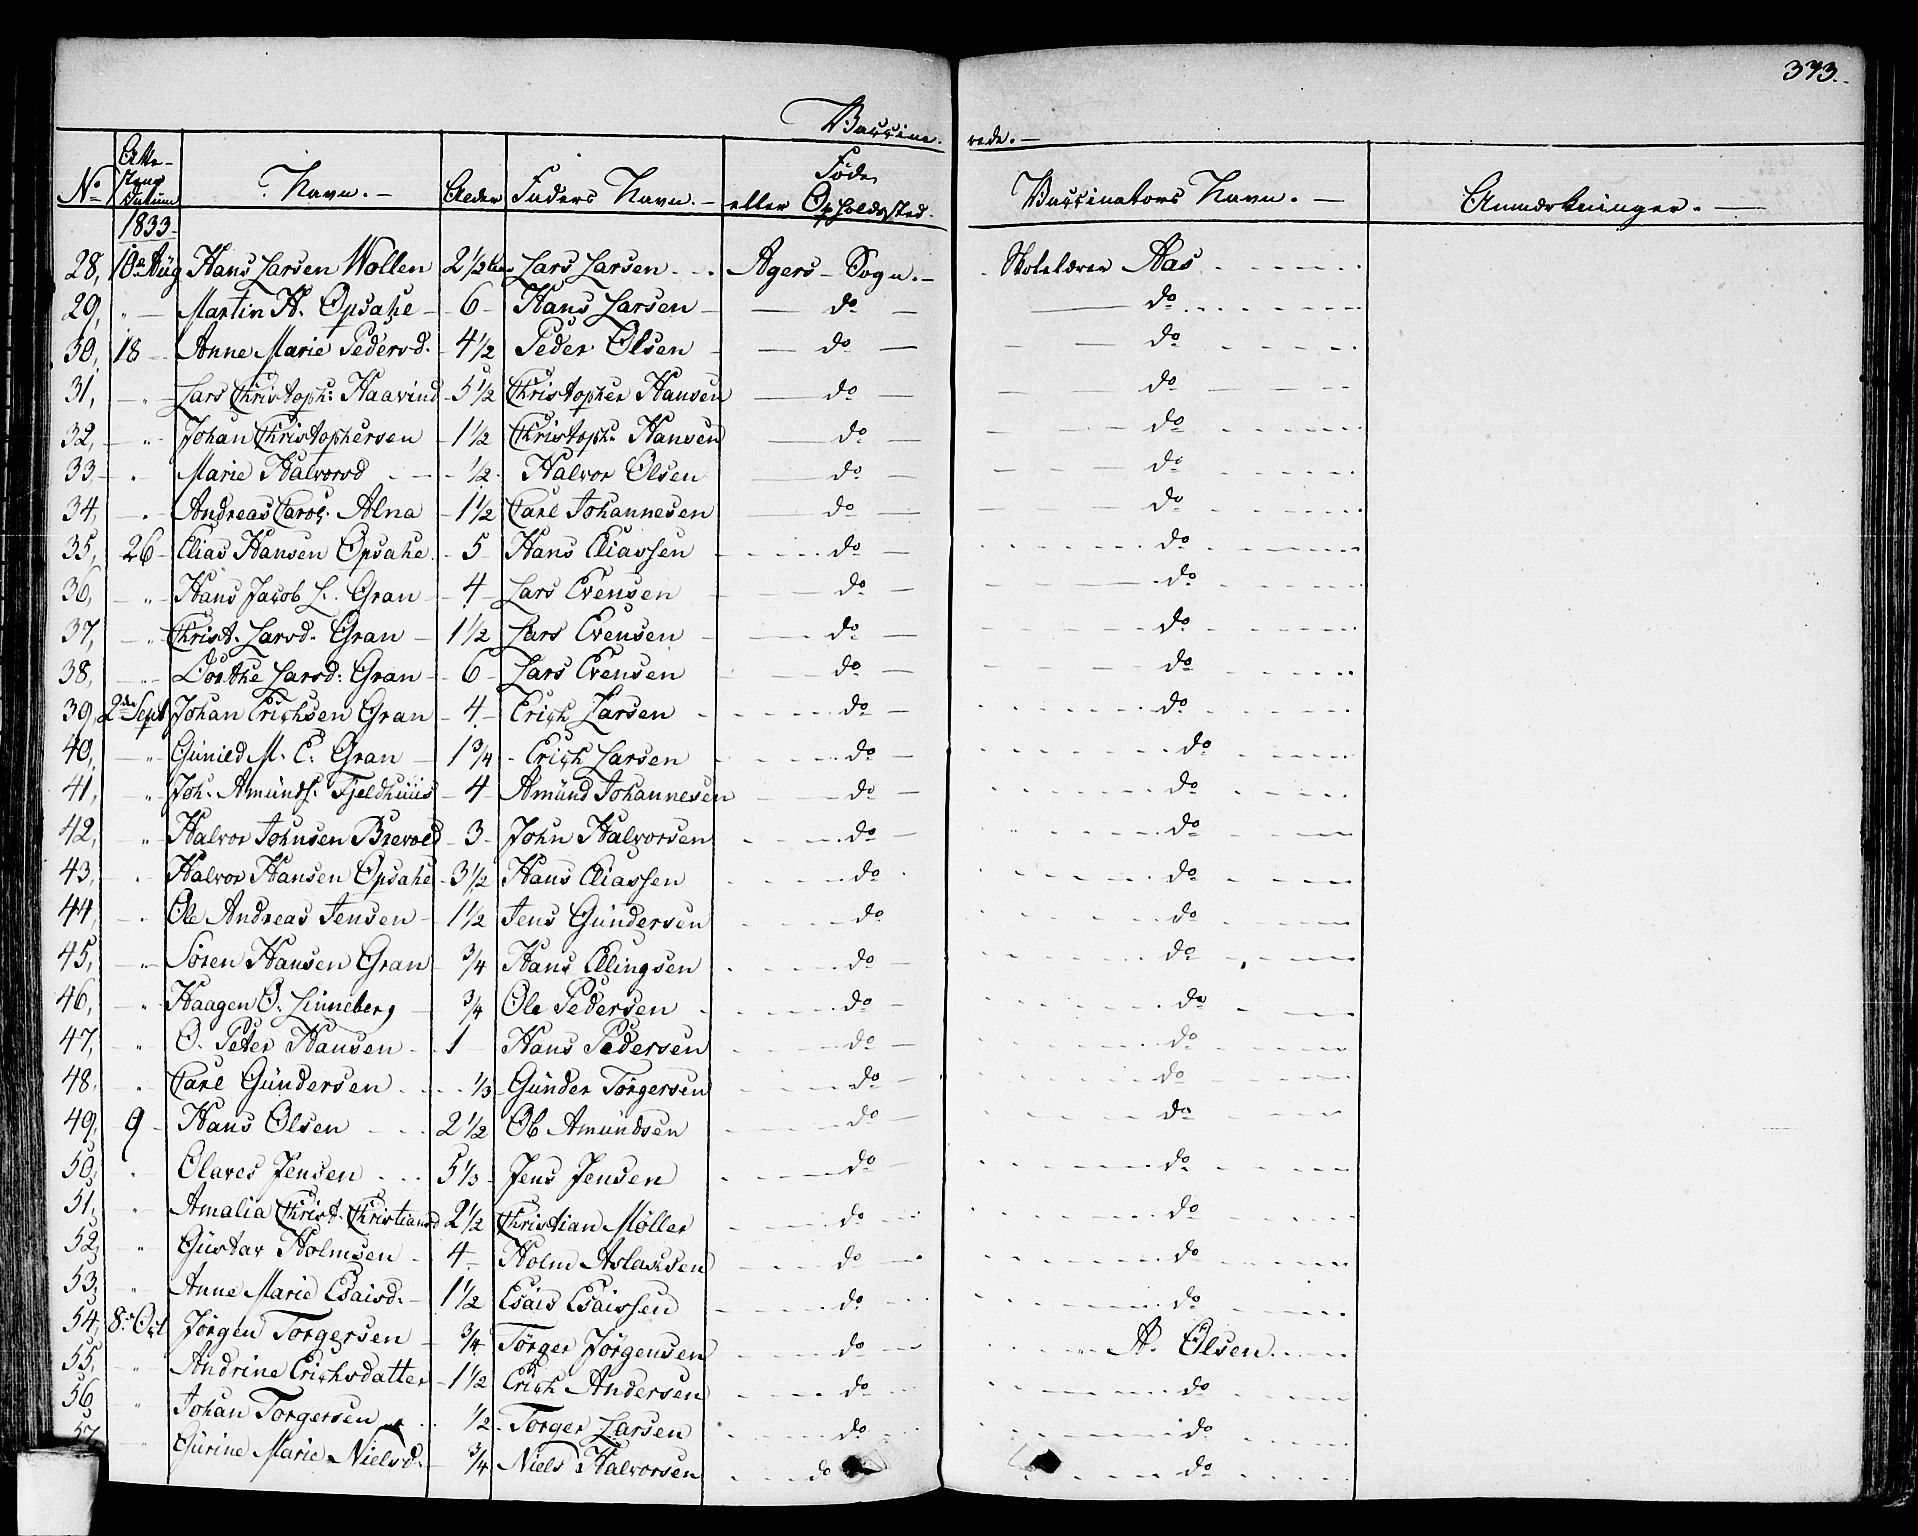 373.
Vaccine- rede.
No Atte- stens Datum Navn. Alder Faders Navn. Føde- eller Opholdssted. Vaccinateurs Navn. Anmærkninger.
1833
28, 10de Aug Hans Larsen Wollen 2 1/3 Lars Larsen Agers Sogn. Skolelærer Aas
29, " Martin H. Opsahe 6 Hans Larsen do do
30, 18 Anne Marie Pedersd. 4 1/2 Peder Olsen do do
31, " Lars Christoph: Haavind 5 1/2 Christopher Hansen do do
32, " Johan Christophersen 1 1/2 Christoph. Hansen do do
33 " Marie Halvorsd 1/2 Halvor Olsen do do
34, " Andreas Carol. Alna 1 1/2 Carl Johannesen do do
35, 26 Elias Hansen Opsahe. 5 Hans Eliassen do do
36, " Hans Jacob L. Gran 4 Lars Evensen do do
37, " Christ. Larsd. Gran 1 1/2 Lars Evensen do do
38, " Dorthe Larsd: Gran 6 Lars Evensen do do
39, 2den Sept Johan Erichsen Gran 4 Erich Larsen do do
40, " Gunild M. E. Gran 1 3/4 Erich Larsen do do
41, " Joh. Amunds. Fjeldhuus 4 Amund Johannesen do do
42, " Halvor Johnsen Brevold 3 John Halvorsen do do
43, " Halvor Hansen Opsahe 3 1/2 Hans Eliassen do do
44, " Ole Andreas Jensen 1 1/2 Jens Gundersen do do
45, " Søren Hansen Gran 3/4 Hans Ellingsen do do
46, " Haagen O. Linneberg 3/4 Ole Pedersen do do
47, " O. Peter Hansen 1 Hans Pedersen do do
48, " Carl Gundersen 1/3 Gunder Torgersen do do
49, 9 Hans Olsen 2 1/2 Ole Amundsen do do
50, " Olaves Jensen 5 1/3 Jens Jensen do do
51, " Amalia Christ. Christiansd 2 1/2 Christian Møller do do
52, " Gustav Holmsen 4 Holm Aslaksen do do
53, " Anne Marie Esaisd. 1 1/2 Esais Esaissen do do
54, 8. Oct Jørgen Torgersen 3/4 Torger Jørgensen do A. Olsen
55, " Andrine Erichsdatter 1 1/2 Erich Andersen do do
56 " Johan Torgersen 1/2 Torger Larsen do do
57 " Gurine Marie Nielsd. 3/4 Niels Halvorsen do do